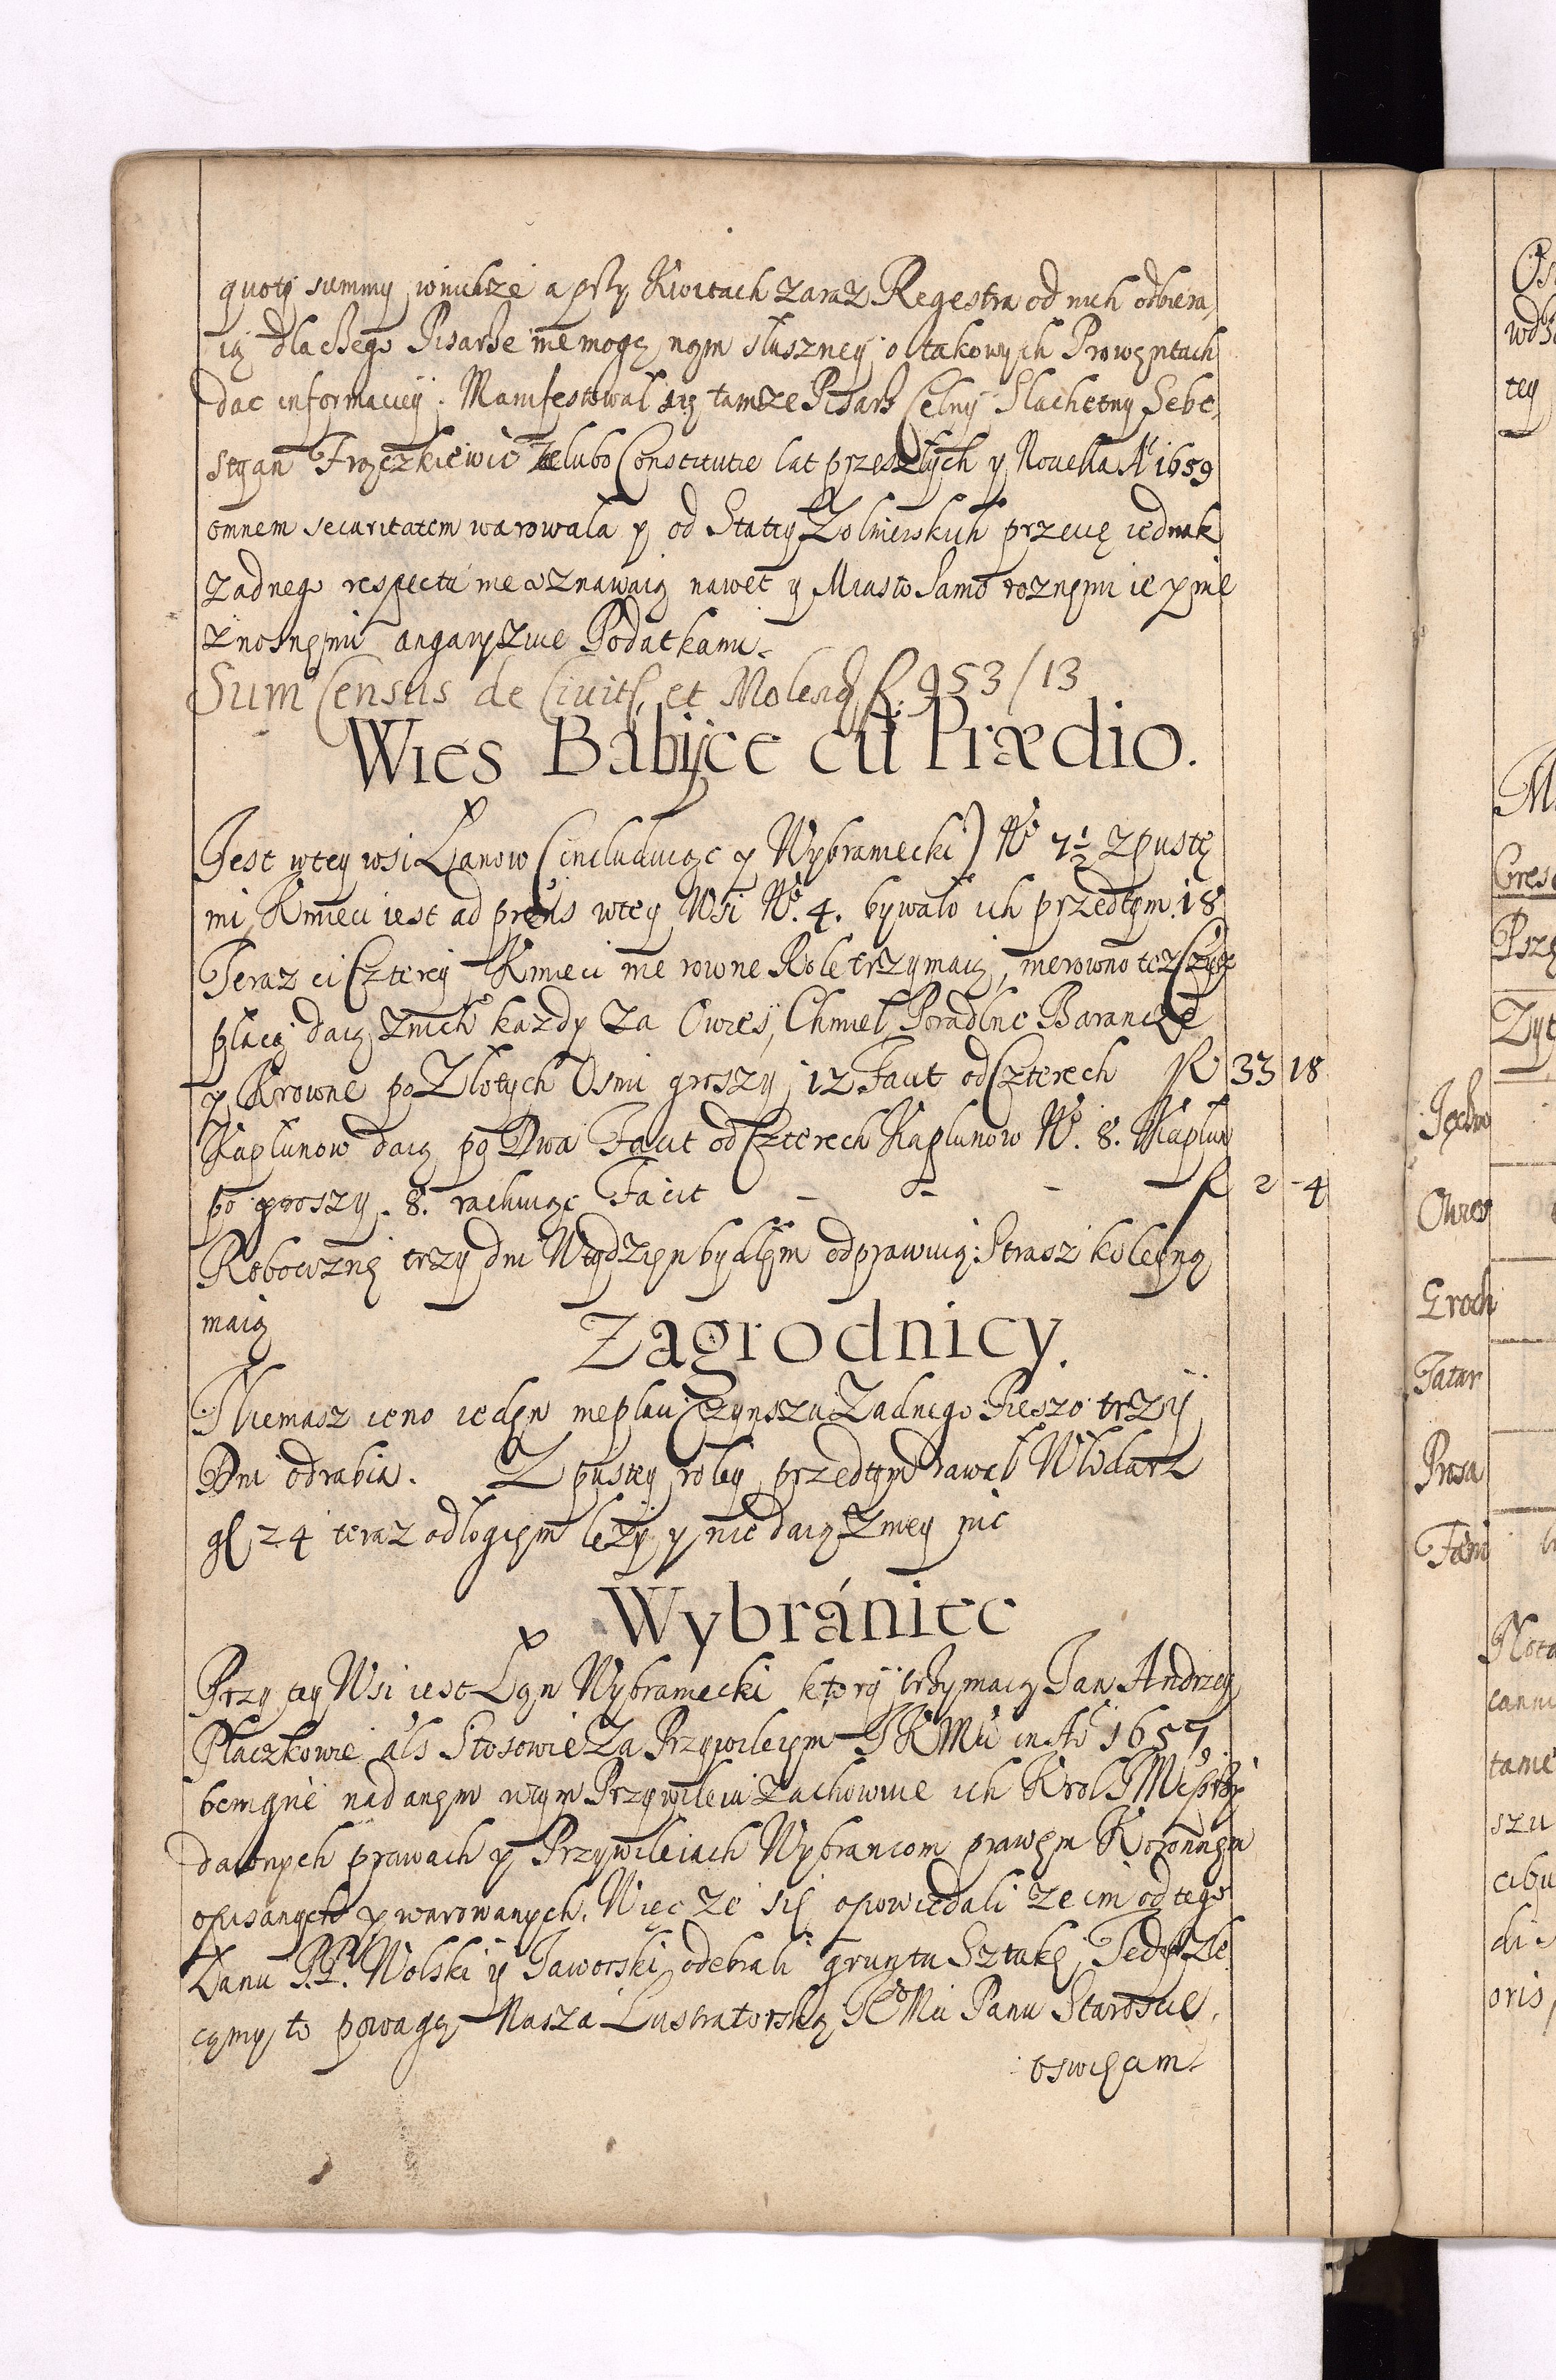 quoty summy winichże a przy Kwitach zaraz Regestra od nich odbiera,
ią dlaczego Pisarze nie mogą nąm słuszney o takowych Prowentach
dac informaciey. Manifestował się tamże Pisarz Celny Slachetny Sebe,
styan Frączkiewic że lubo Constitutie lat przeszłych y Novella Aº 1659
omnem securitatem warowała y od Statiy Zołnierskich przecię iednak
zadnego respectu nie oznawaią nawet y Miasto Samo roznemi ie y nie
znosnęmi angaryzuie Podatkami.
Sum Census de Civit, et Molend f. 953/13
Wies Babijce cū Prædio.
Jest wtey wsi Łanow (includuiąc y Wybraniecki) Nº 7½ z pustę
mi Kmieci iest ad præns wtey Wsi Nº. 4. bywało ich przedtym. 18
Teraz ci Czterey Kmieci nie rowne Role trzymaią, nierowno też Czynsz
płacą daią znich kazdy za Owies, Chmiel, Poradlne Barancze
y Krowne po Złotych Osmi groszy 12 Facit od Czterech f 33 18
Kapłunow daią po Dwa Facit od Czterech Kapłunow Nº. 8. Kapłun
po groszy. 8. rachuiąc Facit - - - - f 2 - 4
Robociznę trzy dni Wtydzięn bydłęm odprawuią: Straz koleyną
maią
Zagrodnicy.
Niemasz ieno iedęn nie płaci Czynszu Zadnego Pieszo trzy
Dni odrabia. Z pustey roley przedtym dawał Włodarz
gl 24 teraz odłogięm leży y nie daią zniey nic
Wybrániec
Przy tey Wsi iest Łąn Wybraniecki ktory trzymaią Jan Andrzey
Płaczkowie als Stosowie Za Przywileięm JKMci in Aº 1657
benigne nadanym wtym Przywileiu zachowuie ich Krol JMć przy
dawnych prawach y Przywileiach Wybrancom prawęm Koronnęm
opisanych y warowanych. Więc że się opowiedali że im od tego
Łanu P.P. Wolski y Jaworski odebrali gruntu Sztukę, Tedy Zle
cymy to powagą Nasza Lustratorską JeºMci Panu Staroscie,
oswięcim.
33 18